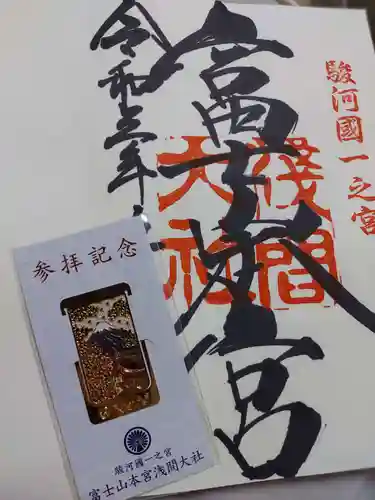 駿河國一之宮
富士山本宮
淺間
大社
令和三年
参拝記念
駿河國一之宮
富士山本宮浅間大社